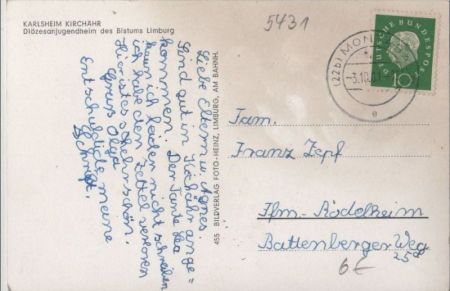 KARLSHEIM KIRCHÄHR
Diözesanjugendheim des Bistums Limburg
5431
DEUTSCHE BUNDESPOST
10
(22b) MON
-3.10.
e
Liebe Eltern u. Agnes.
Sind gut in Kichähr ange=
kommen. Der Tante Lea
kann ich leider nicht schreiben
ich habe den Zettel verloren
Hier ist es sehr schön.
Gruß Olga
Entschuldigte meine
Schrift.
455 BILDVERLAG FOTO-HEINZ, LIMBURG, AM BAHNH.
Fam.
Franz Zepf
Ffm-Rödelheim
Battenberger Weg
25
6€